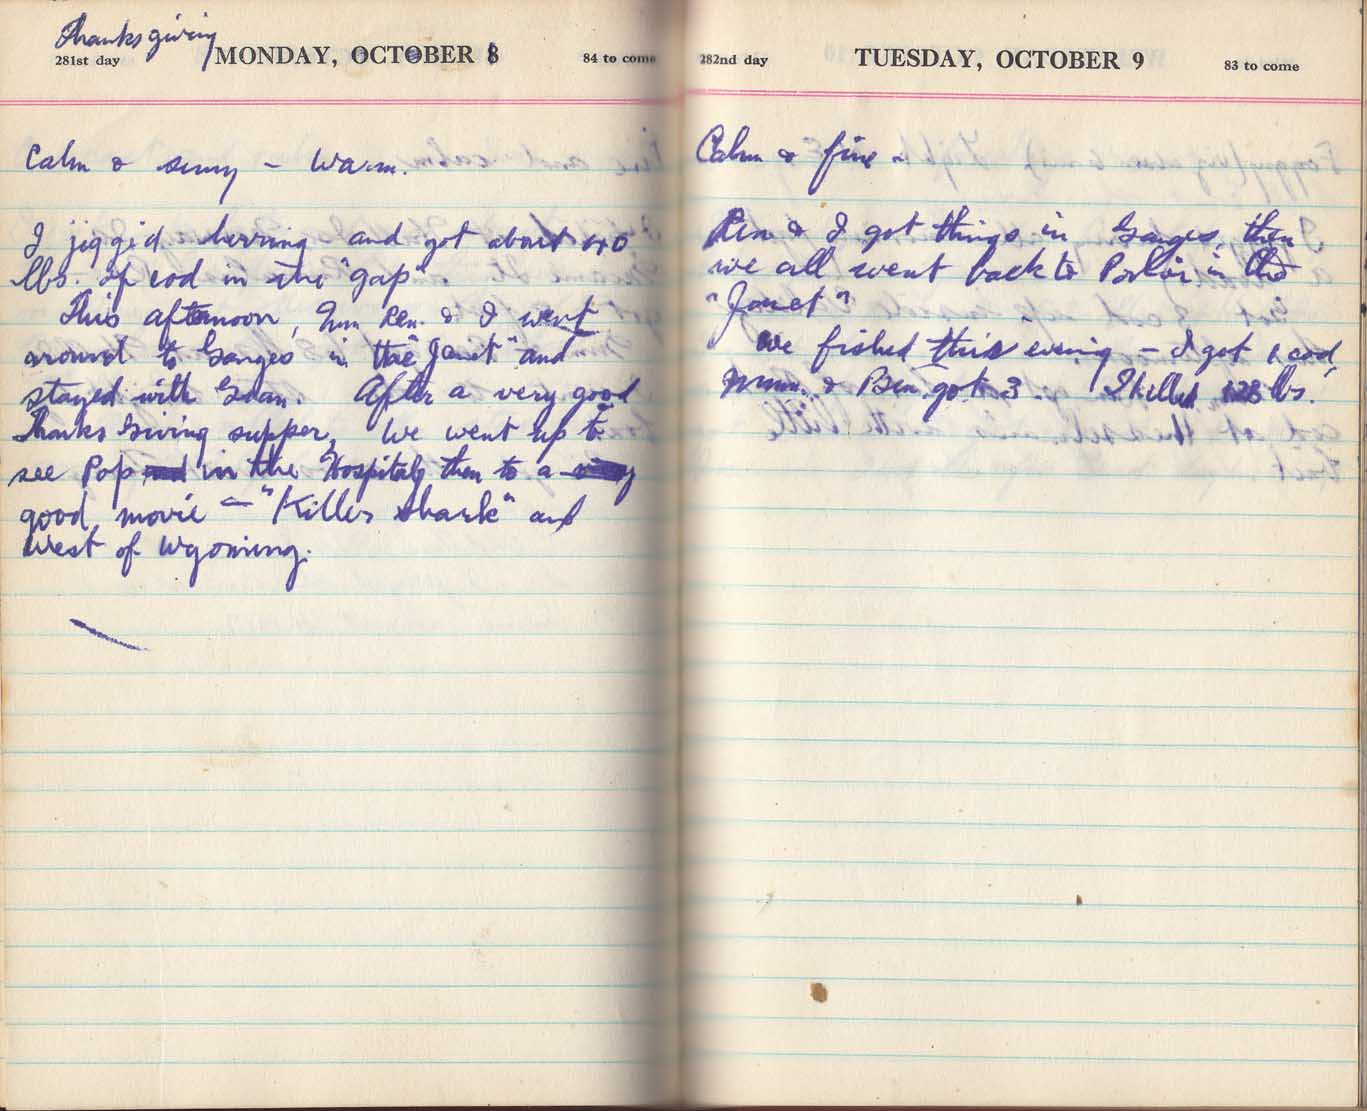 Thanksgiving
281st day MONDAY, OCTOBER 8 84 to come
Calm & sunny - Warm.
I jigged herring and got about 40
lbs. of cod in the "gap"
This afternoon, Mum Ren. & I went
around to Ganges in the "Janet" and
stayed with Gran. After a very good
Thanks Giving supper, We went up to
see Pop in the Hospital, then to a
good movie - "Killer Shark" and
West of Wyoming.
282nd day TUESDAY, OCTOBER 9 83 to come
Calm & fine -
Ren & I got things in Ganges, then
we all went back to Porlier in the
"Janet"
We fished this evening - I got 1 cod,
Mum. & Ren got 3 I killed 128 lbs.